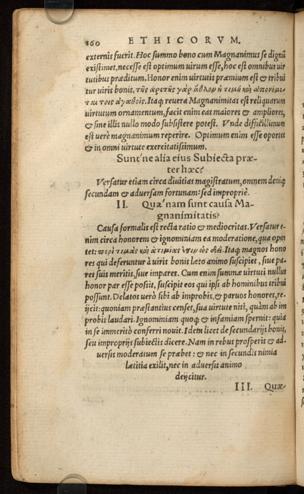 160 ETHICORVM.
externis fuerit. Hoc summo bono cum Magnanimus se dignũ
existimet, necesse est optimum uirum esse, hoc est omnibus uir
tutibus præditum. Honor enim uirtutis præmium est & tribui
tur uiris bonis, τῆς ἀρετῆς γὰρ ἆθλον ἡ τιμὴ καὶ ἀπονέμε-
ται τοῖς ἀγαθοῖς. Itaq; reuera Magnanimitas est reliquarum
uirtutum ornamentum, facit enim eas maiores & ampliores,
& sine illis nullo modo subsistere potest. Vnde difficillimum
est uerè magnanimum reperire. Optimum enim esse oportet
& in omni uirtute exercitatissimum.
Sunt'ne alia eius Subiecta præ-
ter hæc?
Versatur etiam circa diuitias magistratum, omnem deniq;
secundam & aduersam fortunam: sed impropriè.
II. Quæ'nam sunt causa Ma-
gnanimitatis?
Causa formalis est recta ratio & mediocritas. Versatur e-
nim circa honorem & ignominiam ea moderatione, qua opor
tet: Itaq; magnos hono
res qui deferuntur à uiris bonis læto animo suscipiet, siue pa-
res suis meritis, siue impares. Cum enim summæ uirtuti nullus
honor par esse possit, suscipit eos qui ipsi ab hominibus tribui
possunt. Delatos uerò sibi ab improbis, & paruos honores, re-
ijcit: quoniam præstantius censet, sua uirtute niti, quàm ab im
probis laudari. Ignominiam quoq; & infamiam spernit: quia
in se immeritò conferri nouit. Idem licet de secundarijs bonis,
seu improprijs subiectis dicere. Nam in rebus prosperis & ad-
uersis moderatum se præbet: & nec in secundis nimia
lætitia exilit, nec in aduersis animo
deijcitur.
III. Quæ